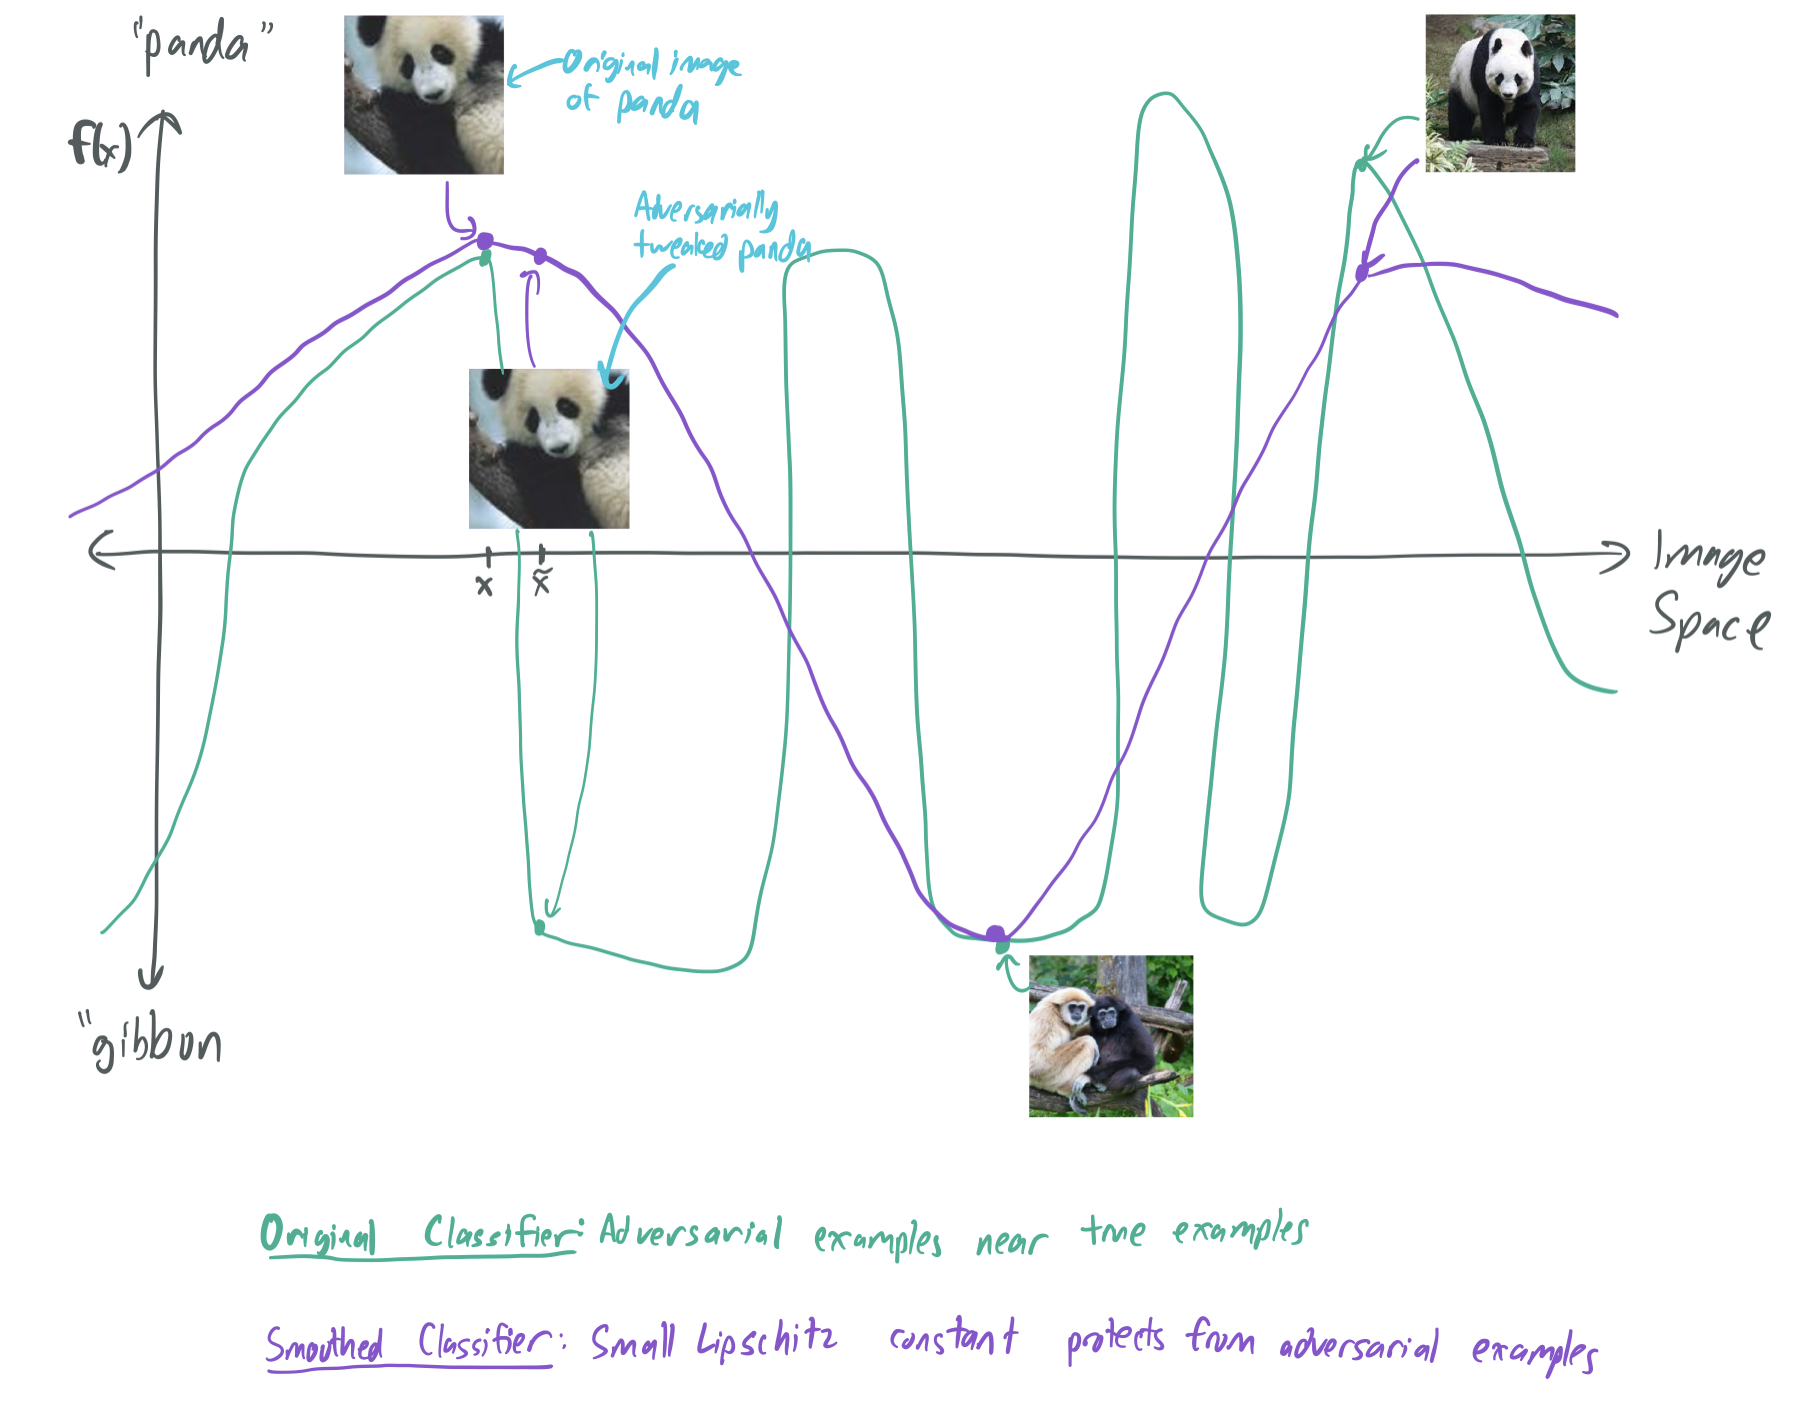 "panda"
f(x)
Original image
of panda
Adversarially
tweaked panda
x
x̃
Image
Space
"gibbon
Original Classifier: Adversarial examples near true examples
Smoothed Classifier: Small Lipschitz constant protects from adversarial examples